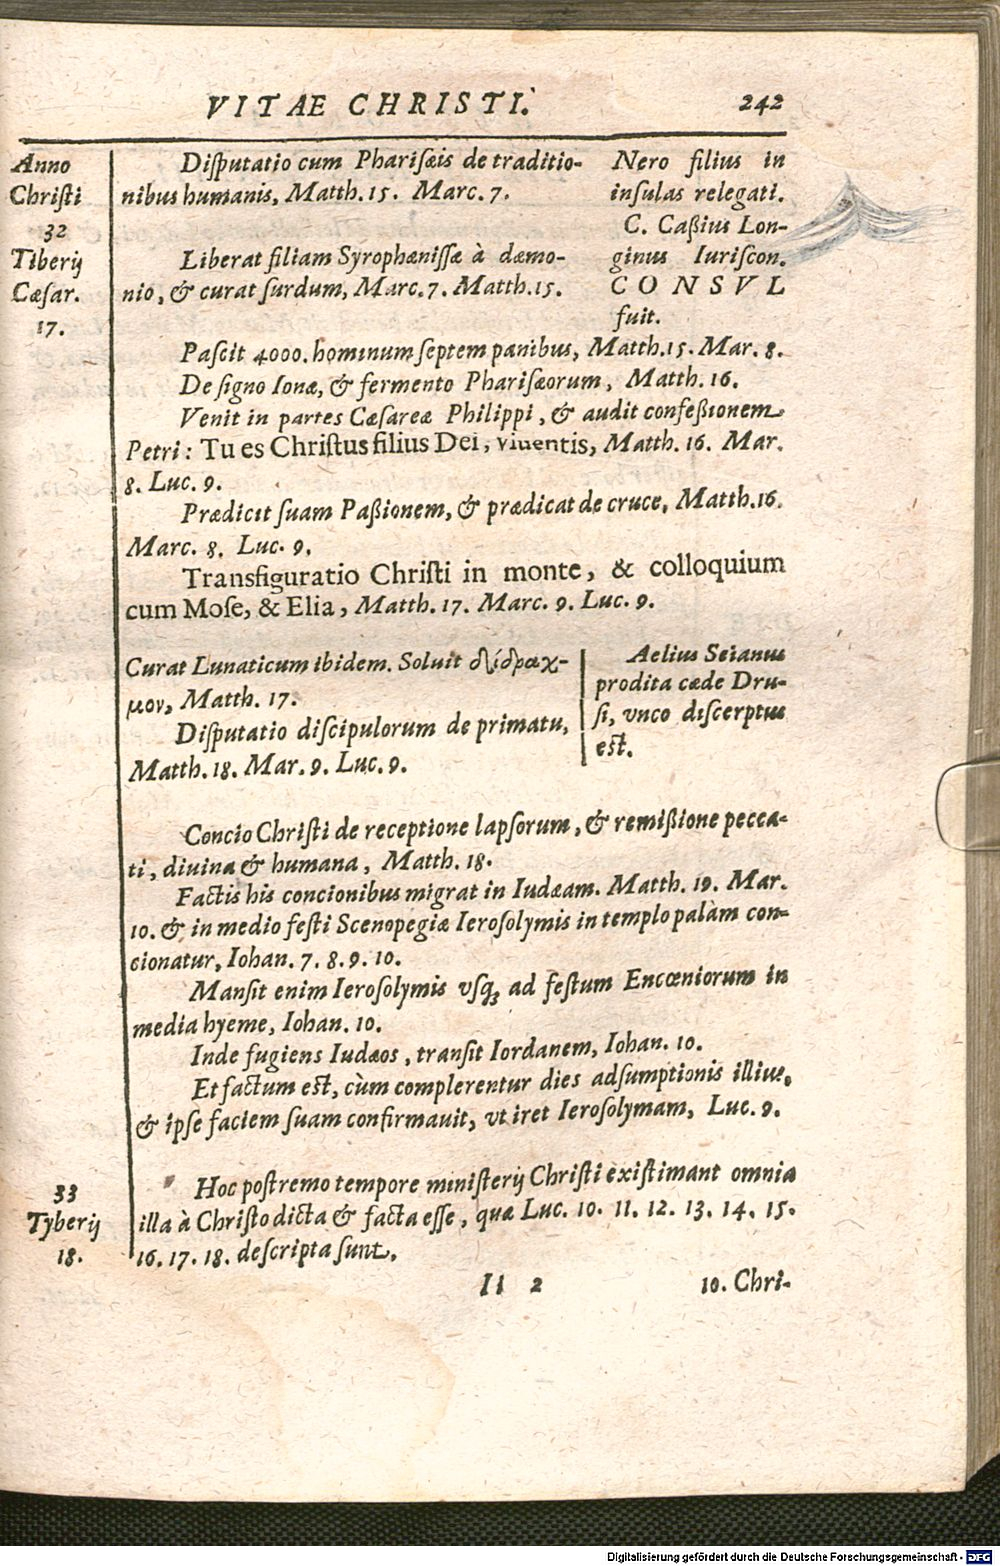 VITAE CHRISTI. 242
Anno
Christi
32
Tiberij
Cæsar.
17.
Disputatio cum Pharisæis de traditio-
nibus humanis, Matth. 15. Marc. 7.
Liberat filiam Syrophænissæ à dæmo-
nio, & curat surdum, Marc. 7. Matth. 15.
Nero filius in
insulas relegati.
C. Caßius Lon-
ginus Iuriscon.
CONSVL
fuit.
Pascit 4000. hominum septem panibus, Matth. 15. Mar. 8.
De signo Ionæ, & fermento Pharisæorum, Matth. 16.
Venit in partes Cæsareæ Philippi, & audit confeßionem
Petri: Tu es Christus filius Dei, viuentis, Matth. 16. Mar.
8. Luc. 9.
Prædicit suam Paßionem, & prædicat de cruce, Matth. 16.
Marc. 8. Luc. 9.
Transfiguratio Christi in monte, & colloquium
cum Mose, & Elia, Matth. 17. Marc. 9. Luc. 9.
Curat Lunaticum ibidem. Soluit δίδραχ-
μον, Matth. 17.
Disputatio discipulorum de primatu,
Matth. 18. Mar. 9. Luc. 9.
Aelius Seianus
prodita cæde Dru-
si, vnco discerptus
est.
Concio Christi de receptione lapsorum, & remißione pecca-
ti, diuina & humana, Matth. 18.
Factis his concionibus migrat in Iudæam. Matth. 19. Mar.
10. & in medio festi Scenopegiæ Ierosolymis in templo palàm con-
cionatur, Iohan. 7. 8. 9. 10.
Mansit enim Ierosolymis vsq; ad festum Encœniorum in
media hyeme, Iohan. 10.
Inde fugiens Iudæos, transit Iordanem, Iohan. 10.
Et factum est, cùm complerentur dies adsumptionis illius,
& ipse faciem suam confirmauit, vt iret Ierosolymam, Luc. 9.
33
Tyberij
18.
Hoc postremo tempore ministerij Christi existimant omnia
illa à Christo dicta & facta esse, quæ Luc. 10. 11. 12. 13. 14. 15.
16. 17. 18. descripta sunt.
Ii 2 10. Chri-
Digitalisierung gefördert durch die Deutsche Forschungsgemeinschaft - DFG